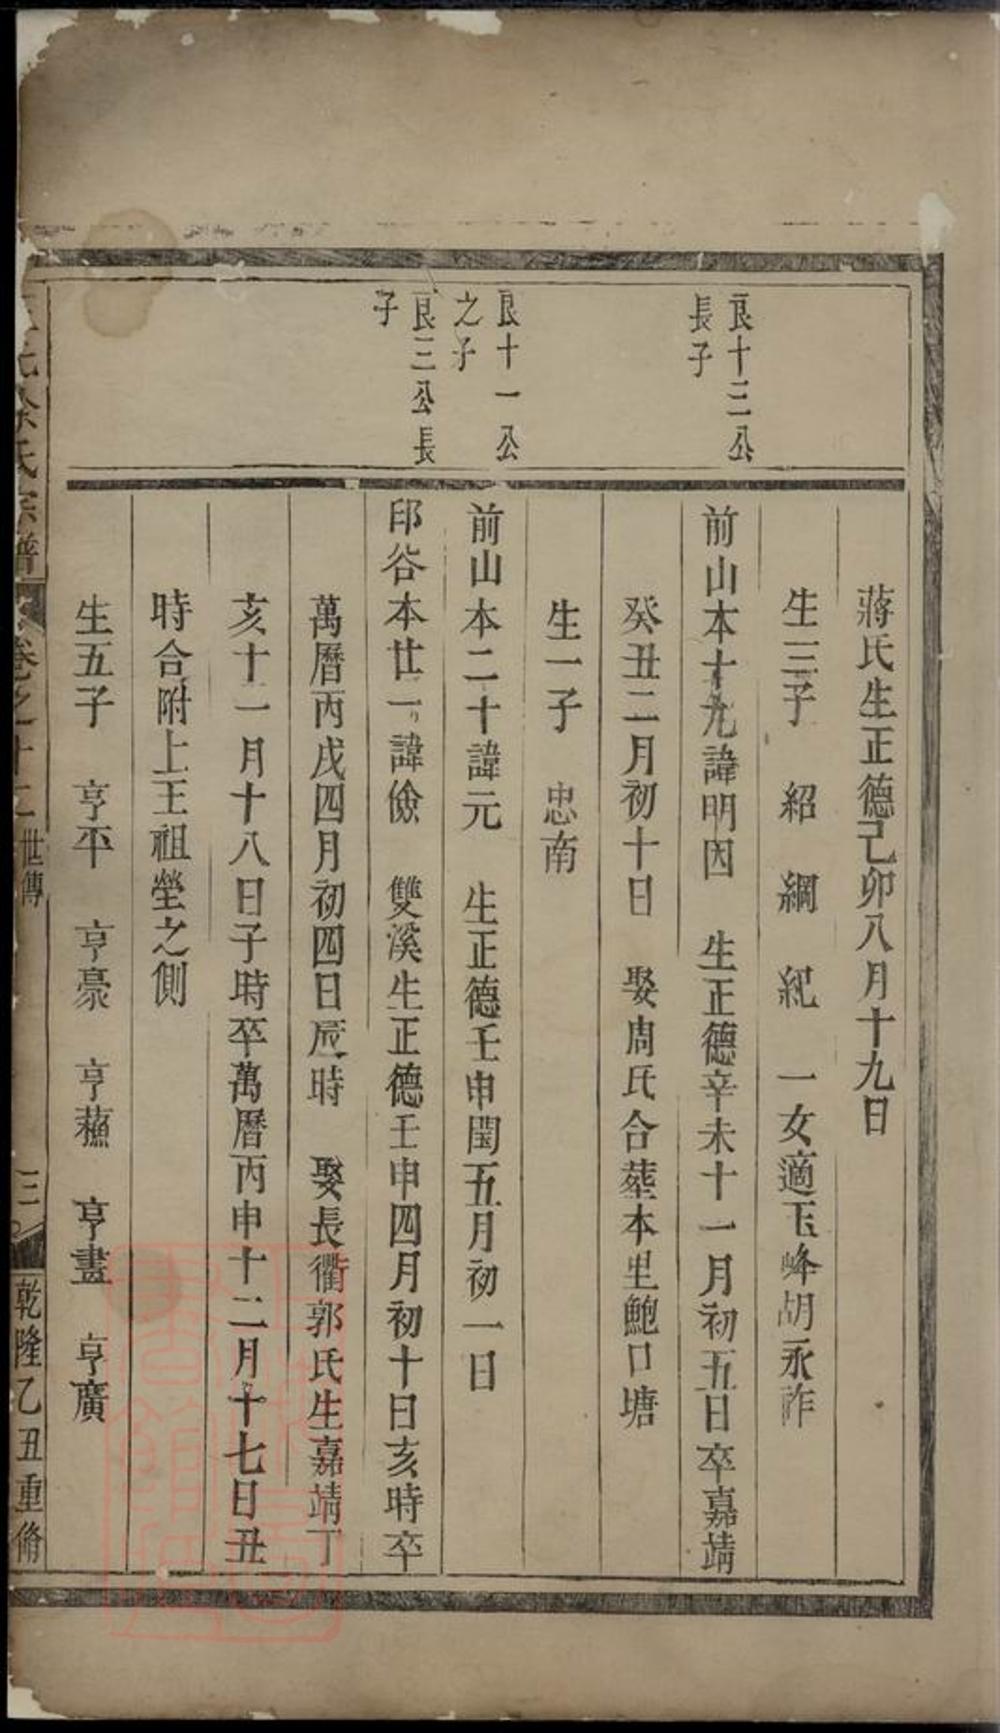 蔣氏生正德己卯八月十九日
生三子　紹　綱　紀　一女適玉峰胡永祚
良十三公
長子
前山本十九諱明因　生正德辛未十一月初五日卒嘉靖
癸丑二月初十日　娶周氏合塟本里鮑口塘
生一子　忠南
良十一公
之子
前山本二十諱元　生正德壬申閏五月初一日
良三公長
子
印谷本廿一諱儉　雙溪生正德壬申四月初十日亥時卒
萬曆丙戌四月初四日辰時　娶長衢郭氏生嘉靖丁
亥十一月十八日子時卒萬曆丙申十二月十七日丑
時合附上王祖塋之側
生五子　亨平　亨豪　亨蘓　亨畫　亨廣
氏徐氏宗譜　卷之十二　世傳　三　乾隆乙丑重脩